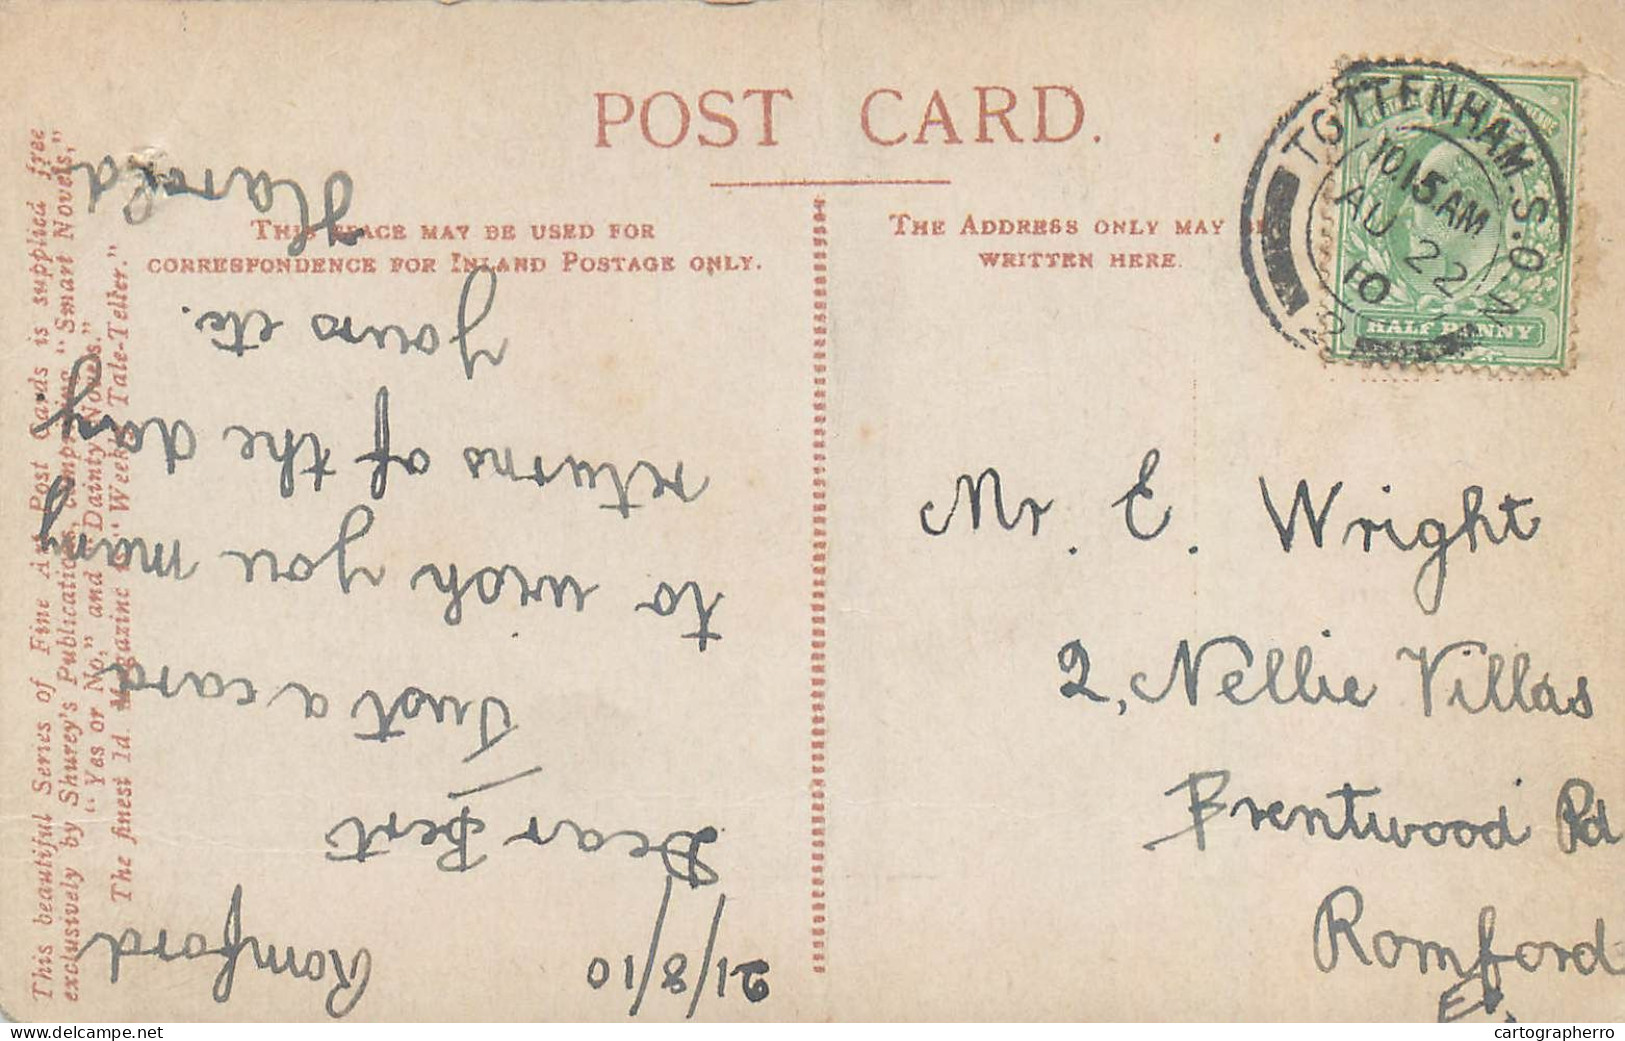 POST CARD.
THIS SPACE MAY BE USED FOR
CORRESPONDENCE FOR INLAND POSTAGE ONLY.
THE ADDRESS ONLY MAY BE
WRITTEN HERE.
TOTTENHAM. S.O.
10.15 AM
AU 22
10
HALF PENNY
Mr. E. Wright
2, Nellie Villas
Brentwood Rd
Romford
Ex.
Romford
21/8/10
Dear Bert
Just a card
to wish you many
returns of the day
Yours etc.
Harold
This beautiful Series of Fine Art Post Cards is supplied free
exclusively by Shurey's Publications, comprising "Smart Novels,"
"Yes or No," and "Dainty Novels."
The finest 1d. Magazine "Weekly Tale-Teller."
cartographerro